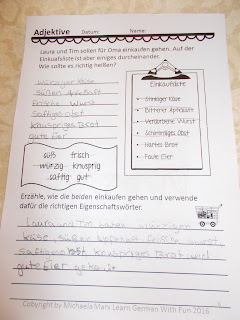 Adjektive Datum: Name:
Laura und Tim sollen für Oma einkaufen gehen. Auf der
Einkaufsliste ist aber einiges durcheinander.
Wie sollte es richtig heißen?
würziger Käse
süßen Apfelsaft
frische Wurst
saftiges Obst
knuspriges Brot
gute Eier
Einkaufsliste
Schleimiger Käse
Bitterer Apfelsaft
Verdorbene Wurst
Schimmliges Obst
Hartes Brot
Faule Eier
süß frisch
würzig knusprig
saftig gut
Erzähle, wie die beiden einkaufen gehen und verwende
dafür die richtigen Eigenschaftswörter.
Laura und Tim haben würzigen
Käse süßen Apfelsaft frische
saftiges Obst knuspriges Brot und
gute Eier gekauft
Copyright by Michaela Marx Learn German With Fun 2016